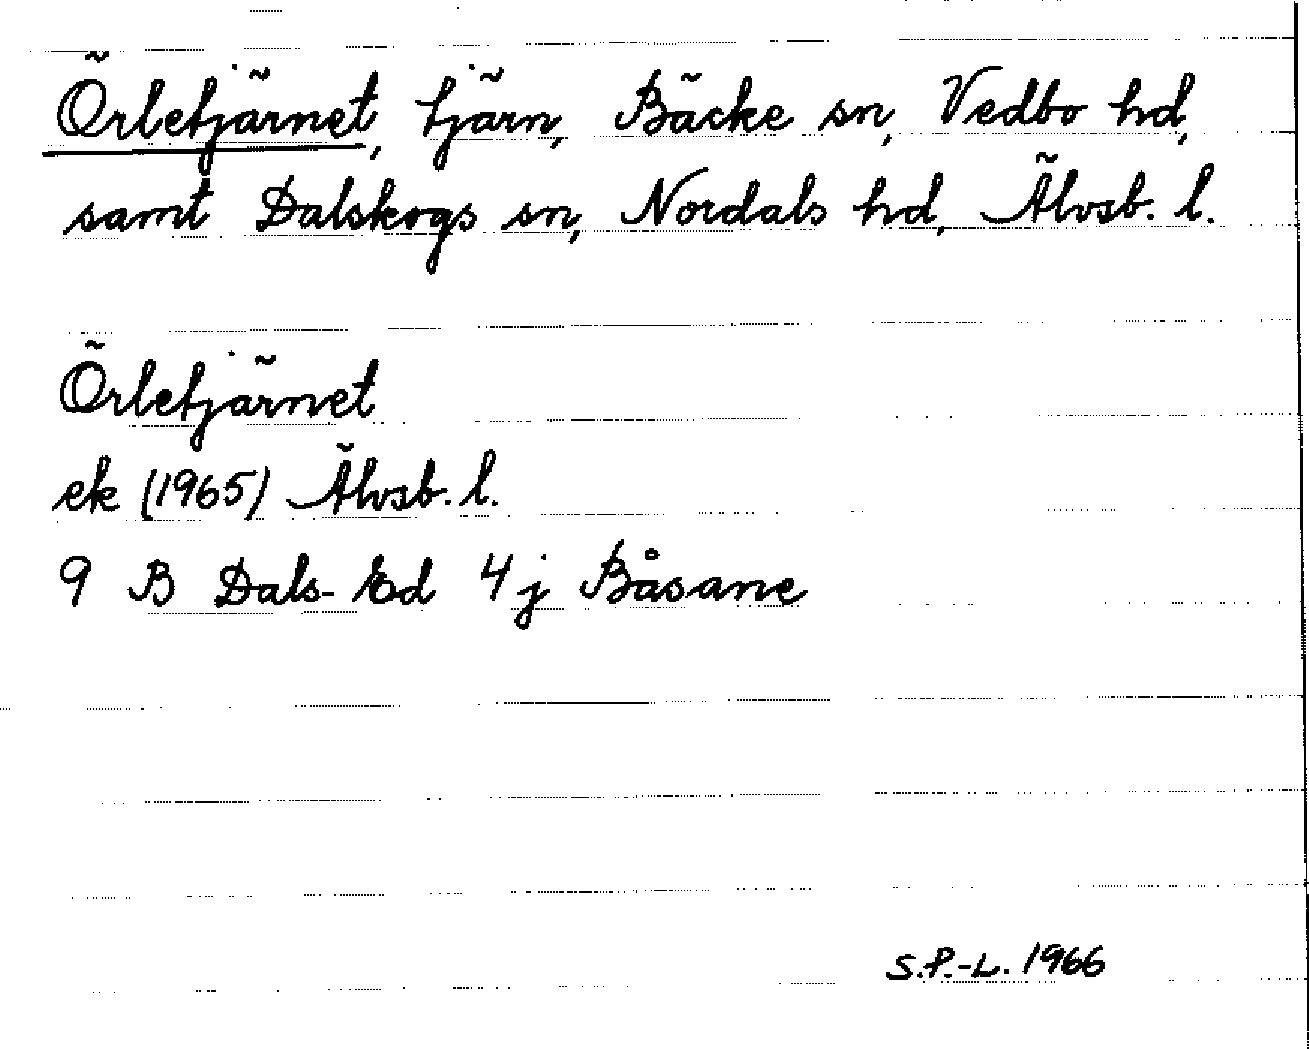 Örletjärnet, tjärn, Bäcke sn, Vedbo hd,
samt Dalskogs sn, Nordals hd, Älvsb. l.
Örletjärnet
ek (1965) Älvsb. l.
9 B Dals-Ed 4 j Båsane
S.P.-L. 1966